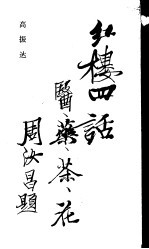 红楼四话
醫、藥、茶、花
周汝昌題
高振达